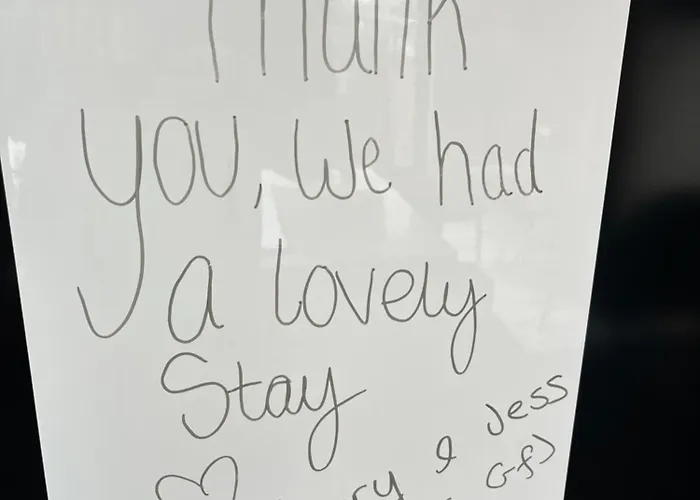 Thank
you, we had
a lovely
Stay
& Jess